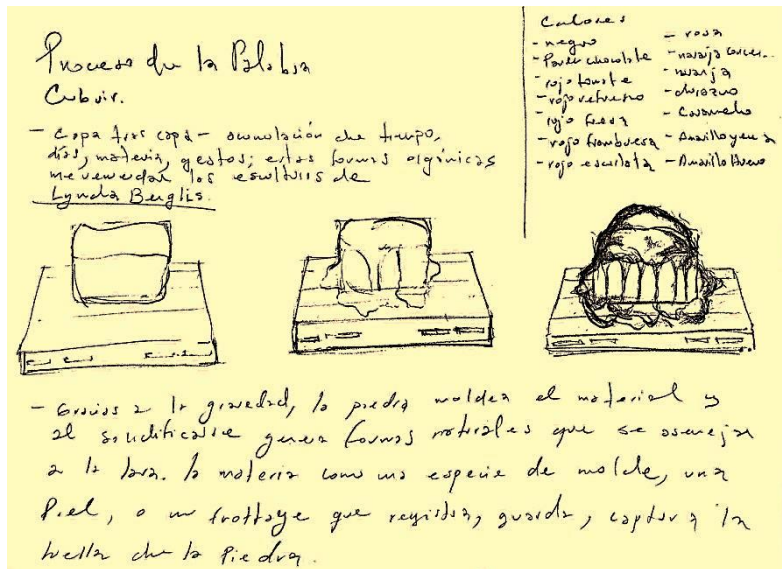 Proceso de la Palabra
Cubrir.
- Capa tras capa - acumulación de tiempo,
días, materia, gestos; estas formas orgánicas
me
Lynda Benglis.
Colores
- negro
- chocolate
- rojo tomate
- rojo
- rojo fresa
- rojo frambuesa
- rojo escarlata
- rosa
- naranja
- naranja
- durazno
- Caramelo
- Amarillo yema
- Amarillo Huevo
- Gracias a la gravedad, la piedra moldea el material y
al solidificarse genera formas naturales que se asemejan
a la lava. la materia como una especie de molde, una
Piel, o un frottage que registra, guarda, captura la
huella de la Piedra.